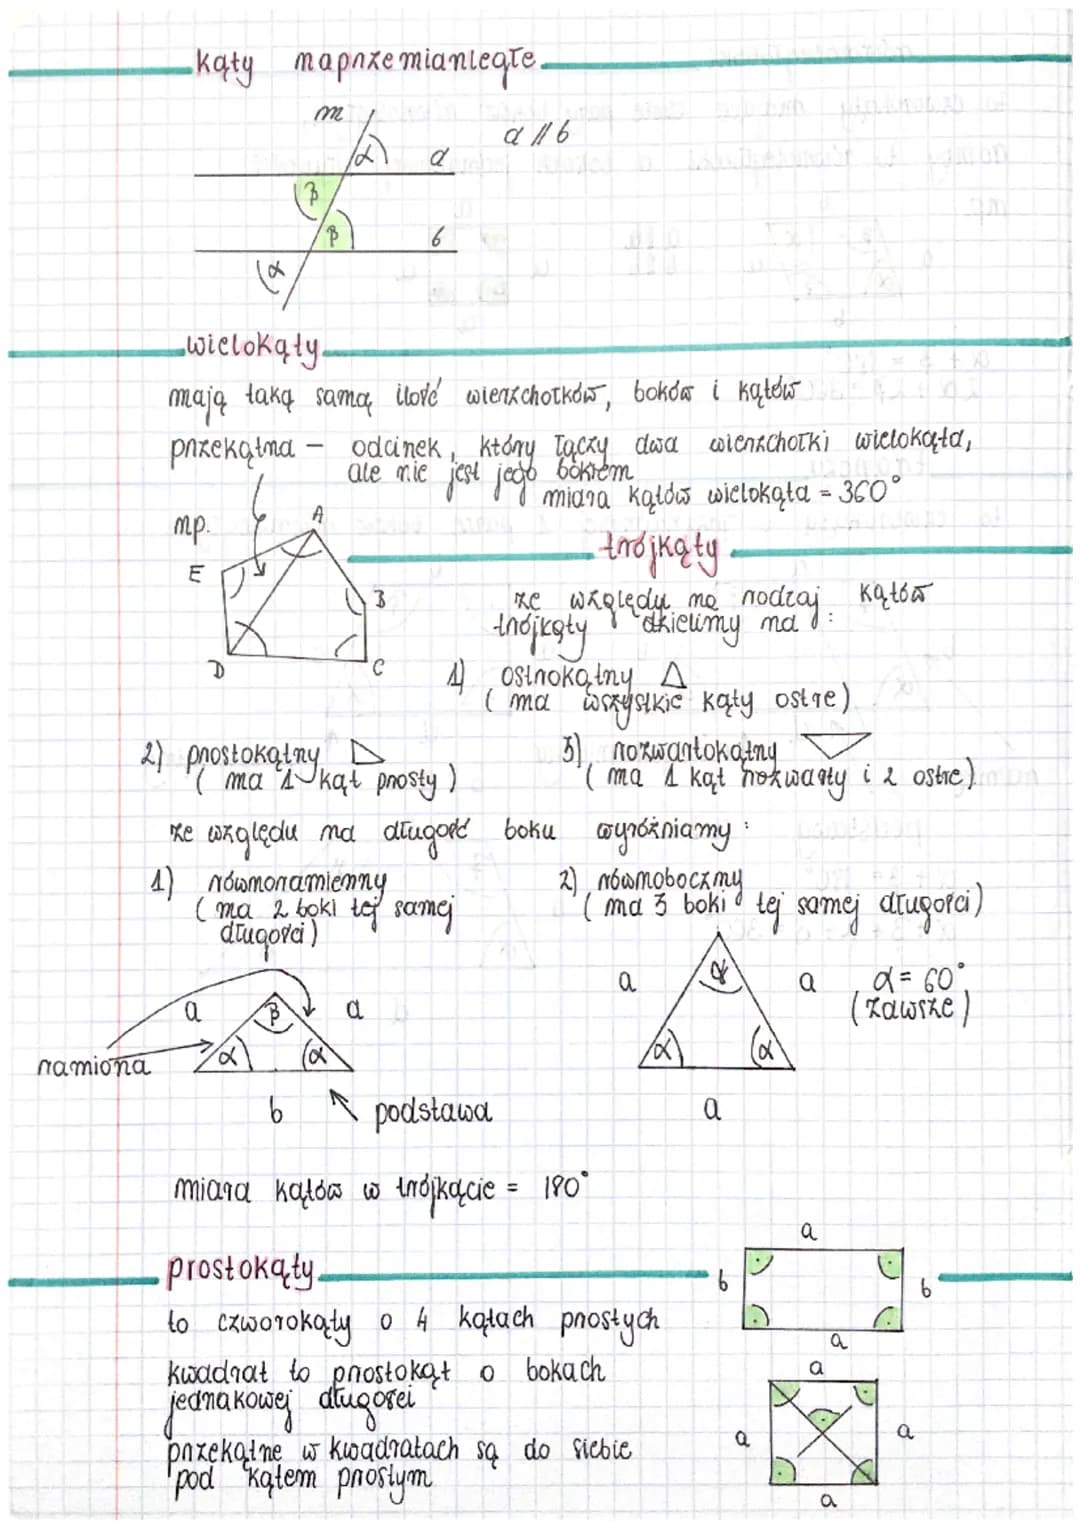 kąty naprzemianległe
m
a // b
α a
β
β b
α
wielokąty
mają taką samą ilość wierzchołków, boków i kątów
przekątna – odcinek, który łączy dwa wierzchołki wielokąta,
ale nie jest jego bokiem
miara kątów wielokąta = 360°
np.
A
E
B
D
C
trójkąty
ze względu na rodzaj kątów
trójkąty dzielimy na :
1) ostrokątny
( ma wszystkie kąty ostre)
2) prostokątny
( ma 1 kąt prosty )
3) rozwartokątny
( ma 1 kąt rozwarty i 2 ostre)
ze względu na długość boku wyróżniamy :
1) równoramienny
( ma 2 boki tej samej
długości )
2) równoboczny
( ma 3 boki tej samej długości)
a β a
α α
ramiona
b podstawa
a α a
α α
a
α = 60°
(zawsze)
miara kątów w trójkącie = 180°
prostokąty
to czworokąty o 4 kątach prostych
a
b b
a
kwadrat to prostokąt o bokach
jednakowej długości
przekątne w kwadratach są do siebie
pod kątem prostym
a
a a
a